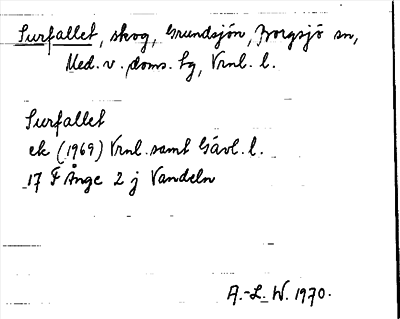 Surfallet, skog, Grundsjön, Borgsjö sn,
Med. v. doms. tg, Vrnl. l.
Surfallet
ek (1969) Vrnl. samt Gävl. l.
17 F Ånge 2 j Vandeln
A.-L. W. 1970.